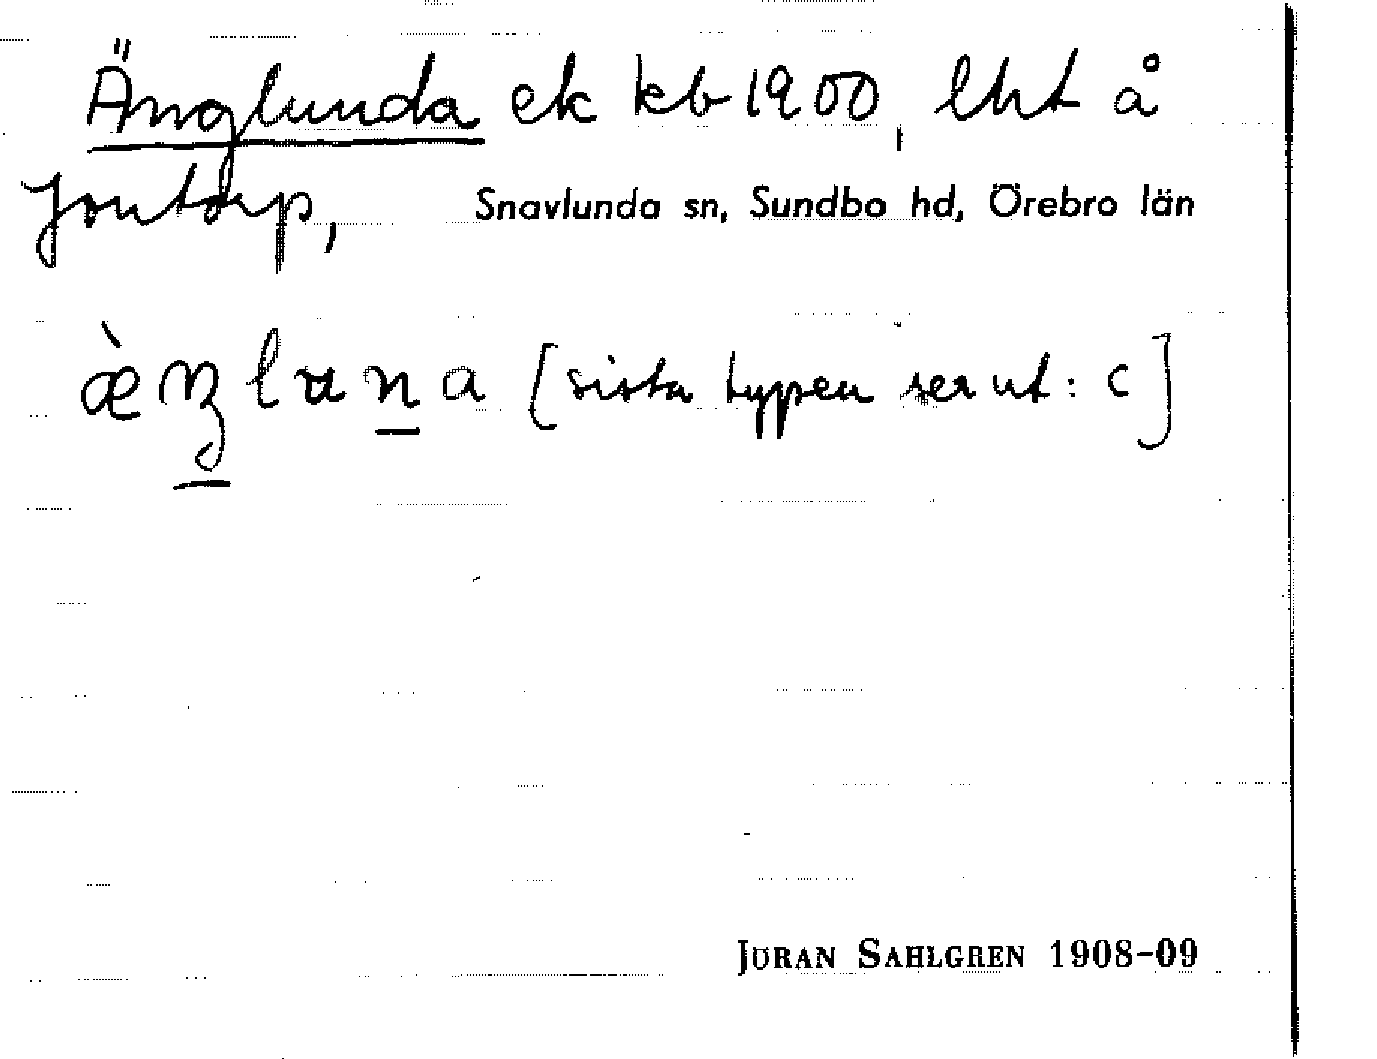 Änglunda ek kb 1900, lht å
Jontorp, Snavlunda sn, Sundbo hd, Örebro län
æ̀ŋluna [sista typen ser ut: c]
JÖRAN SAHLGREN 1908-09